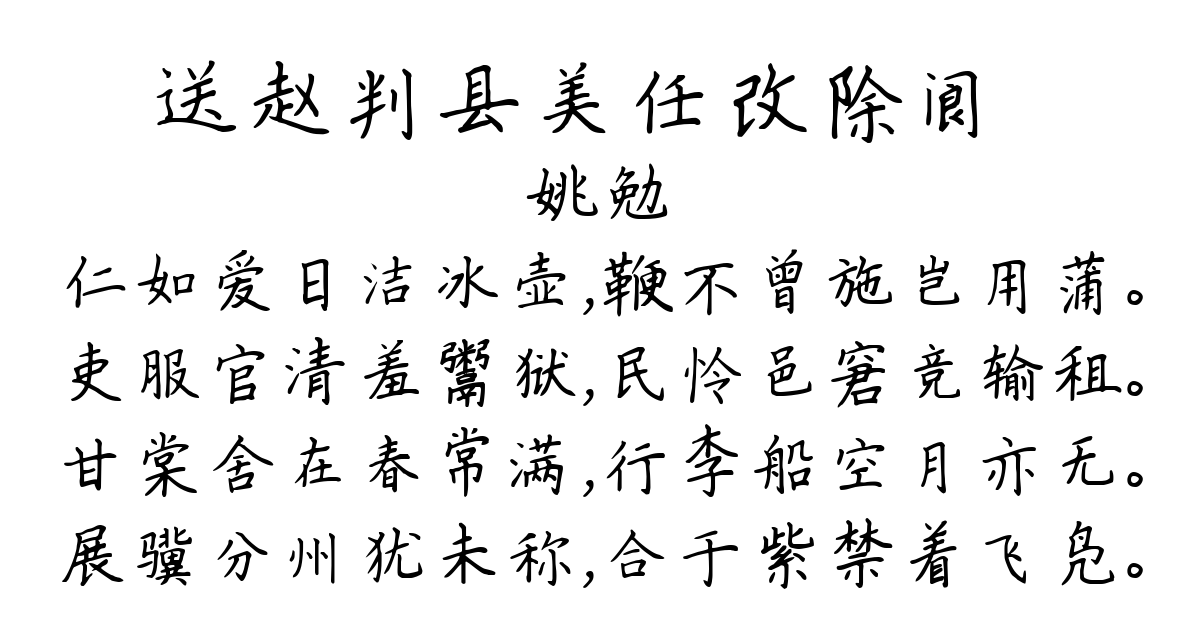 送赵判县美任改除阆
姚勉
仁如爱日洁冰壶,鞭不曾施岂用蒲。
吏服官清羞鬻狱,民怜邑窘竞输租。
甘棠舍在春常满,行李船空月亦无。
展骥分州犹未称,合于紫禁着飞凫。